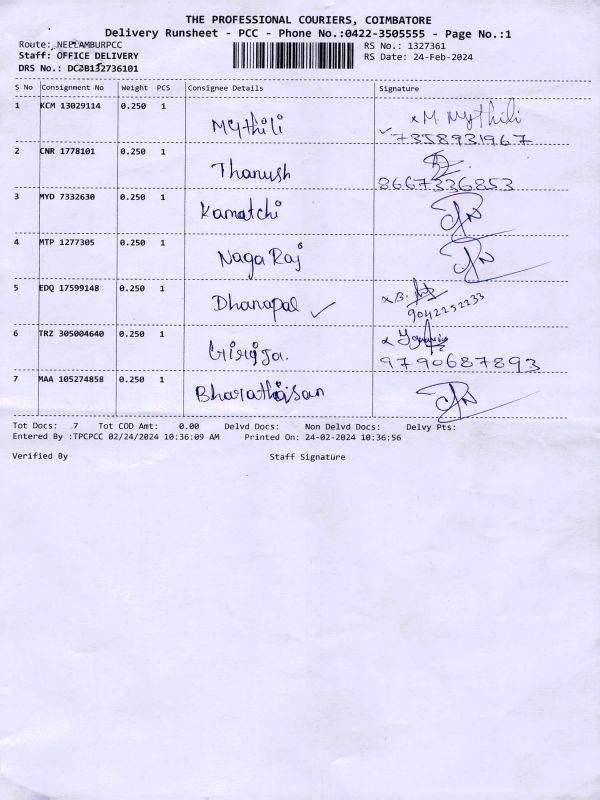 THE PROFESSIONAL COURIERS, COIMBATORE
Delivery Runsheet - PCC - Phone No.:0422-3505555 - Page No.:1
Route: NEELAMBURPCC RS No.: 1327361
Staff: OFFICE DELIVERY RS Date: 24-Feb-2024
DRS No.: DCJB132736101
S No Consignment No Weight PCS Consignee Details Signature
1 KCM 13029114 0.250 1 Mythili x M. Mythili
7358931967
2 CNR 1778101 0.250 1 Thanush
8667336853
3 MYD 7332630 0.250 1 Kamatchi
4 MTP 1277305 0.250 1 Naga Raj
5 EDQ 17599148 0.250 1 Dhanapal ✓ x B.
9042252233
6 TRZ 305004640 0.250 1 Girija. x
9790687893
7 MAA 105274858 0.250 1
Tot Docs: 7 Tot COD Amt: 0.00 Delvd Docs: Non Delvd Docs: Delvy Pts:
Entered By :TPCPCC 02/24/2024 10:36:09 AM Printed On: 24-02-2024 10:36:56
Verified By Staff Signature